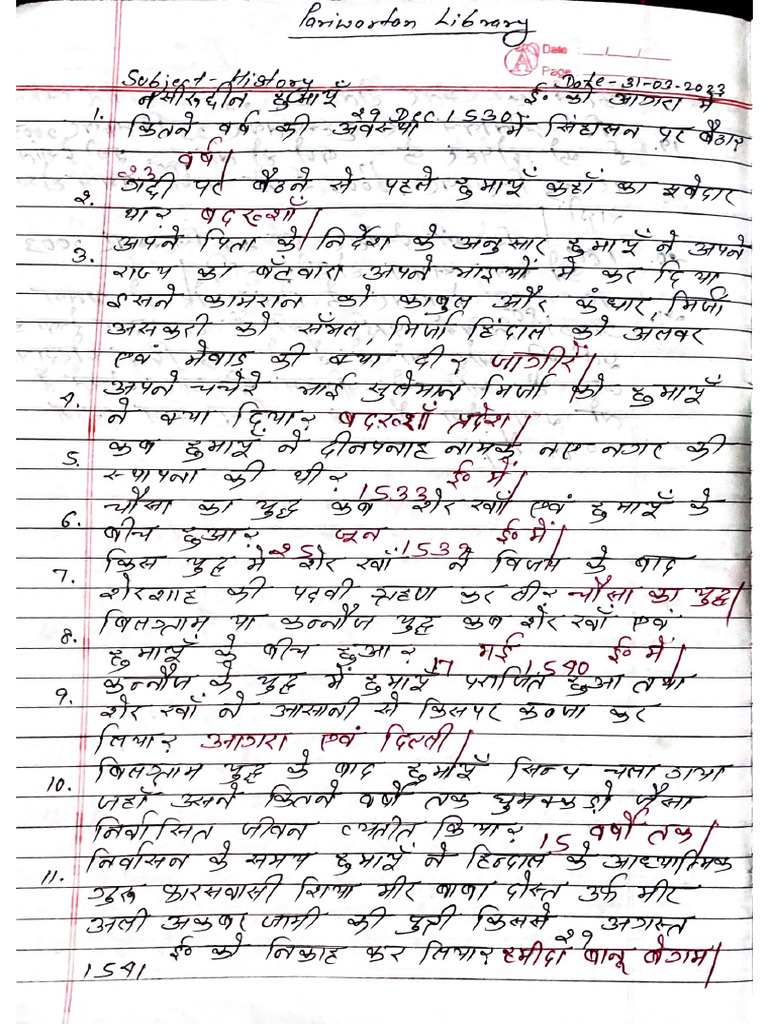 Pariwartan Library
Date
Page
Subject-History Date-31-03-2023
1. नसीरुद्दीन हुमायूँ 29 Dec 1530 ई० को आगरा में
कितने वर्ष की अवस्था में सिंहासन पर बैठा?
23 वर्ष।
2. गद्दी पर बैठने से पहले हुमायूँ कहाँ का सूबेदार
था? बदख्शाँ।
3. अपने पिता के निर्देश के अनुसार हुमायूँ ने अपने
राज्य का बँटवारा अपने भाइयों में कर दिया
इसने कामरान को काबुल और कंधार, मिर्जा
असकरी को सँभल, मिर्जा हिंदाल को अलवर
एवं मेवाड़ की क्या दी? जागीरें।
4. अपने चचेरे भाई सुलेमान मिर्जा को हुमायूँ
ने क्या दिया? बदख्शाँ प्रदेश।
5. कब हुमायूँ ने दीनपनाह नामक नए नगर की
स्थापना की थी? 1533 ई० में।
6. चौसा का युद्ध कब शेर खाँ एवं हुमायूँ के
बीच हुआ? 25 जून 1539 ई० में।
7. किस युद्ध में शेर खाँ ने विजय के बाद
शेरशाह की पदवी ग्रहण कर ली? चौसा का युद्ध।
8. बिलग्राम या कन्नौज युद्ध कब शेर खाँ एवं
हुमायूँ के बीच हुआ? 17 मई 1540 ई० में।
9. कन्नौज के युद्ध में हुमायूँ पराजित हुआ तथा
शेर खाँ ने आसानी से किसपर कब्जा कर
लिया? आगरा एवं दिल्ली।
10. बिलग्राम युद्ध के बाद हुमायूँ सिन्ध चला गया
जहाँ उसने कितने वर्षों तक घुमक्कड़ो जैसा
निर्वासित जीवन व्यतीत किया? 15 वर्षों तक।
11. निर्वासन के समय हुमायूँ ने हिन्दाल के आध्यात्मिक
गुरू फारसवासी शिया मीर बाबा दोस्त उर्फ मीर
अली अकबर जामी की पुत्री किससे 29 अगस्त
1541 ई० को निकाह कर लिया? हमीदा बानू बेगम।